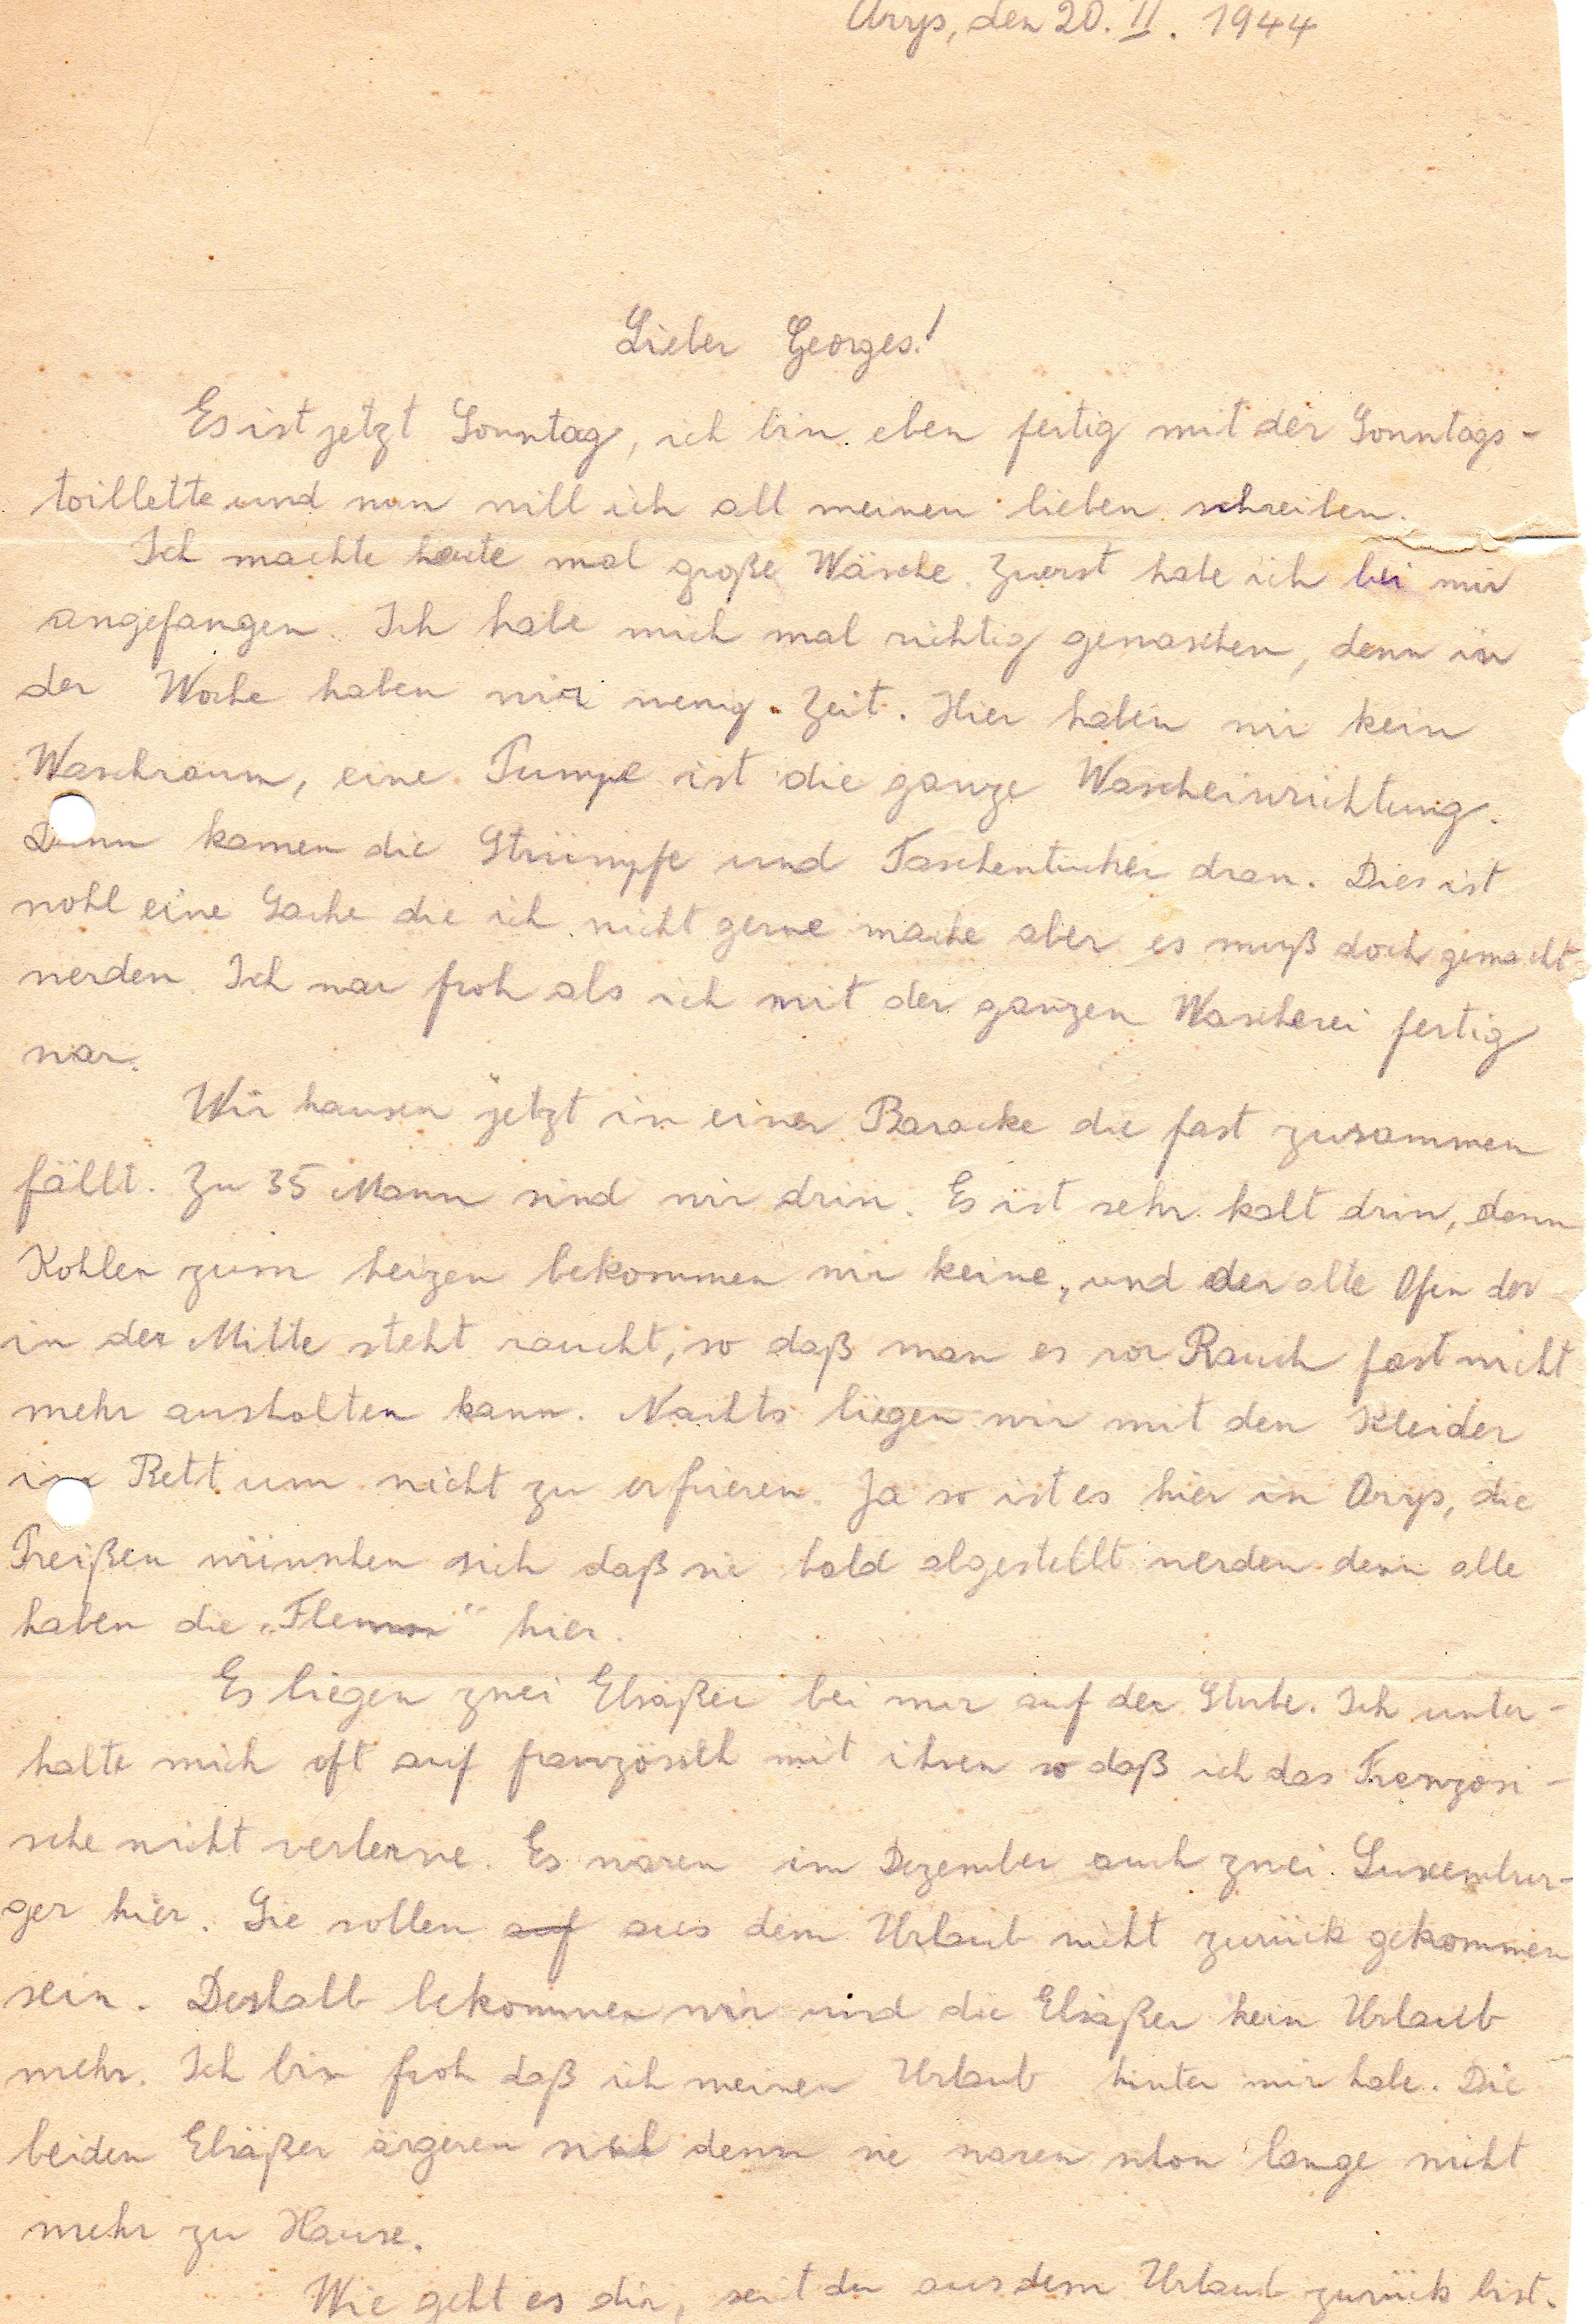 Arys, den 20. II. 1944
Lieber Georges!
Es ist jetzt Sonntag, ich bin eben fertig mit der Sonntags-
toillette und nun will ich all meinen lieben schreiben.
Ich machte heute mal große Wäsche. Zuerst habe ich bei mir
angefangen. Ich habe mich mal richtig gewaschen, denn in
der Woche haben wir wenig Zeit. Hier haben wir kein
Waschraum, eine Pumpe ist die ganze Wascheinrichtung.
Dann kamen die Strümpfe und Taschentücher dran. Dies ist
wohl eine Sache die ich nicht gerne mache aber es muß doch gemacht
werden. Ich war froh als ich mit der ganzen Wascherei fertig
war.
Wir hausen jetzt in einer Baracke die fast zusammen
fällt. Zu 35 Mann sind wir drin. Es ist sehr kalt drin, denn
Kohlen zum heizen bekommen wir keine, und der alte Ofen der
in der Mitte steht raucht, so daß man es vor Rauch fast nicht
mehr aushalten kann. Nachts liegen wir mit den Kleider
im Bett um nicht zu erfrieren. Ja so ist es hier in Arys, die
Preißen wünschen sich daß sie bald abgestellt werden denn alle
haben die „Flemm“ hier.
Es liegen zwei Elsäßer bei mir auf der Stube. Ich unter-
halte mich oft auf französisch mit ihnen so daß ich das Französi-
sche nicht verlerne. Es waren im Dezember auch zwei Luxembur-
ger hier. Sie sollen auf aus dem Urlaub nicht zurück gekommen
sein. Deshalb bekommen wir und die Elsäßer kein Urlaub
mehr. Ich bin froh daß ich meinen Urlaub hinter mir habe. Die
beiden Elsäßer ärgeren sich denn sie waren schon lange nicht
mehr zu Hause.
Wie geht es dir, seit du aus dem Urlaub zurück bist.